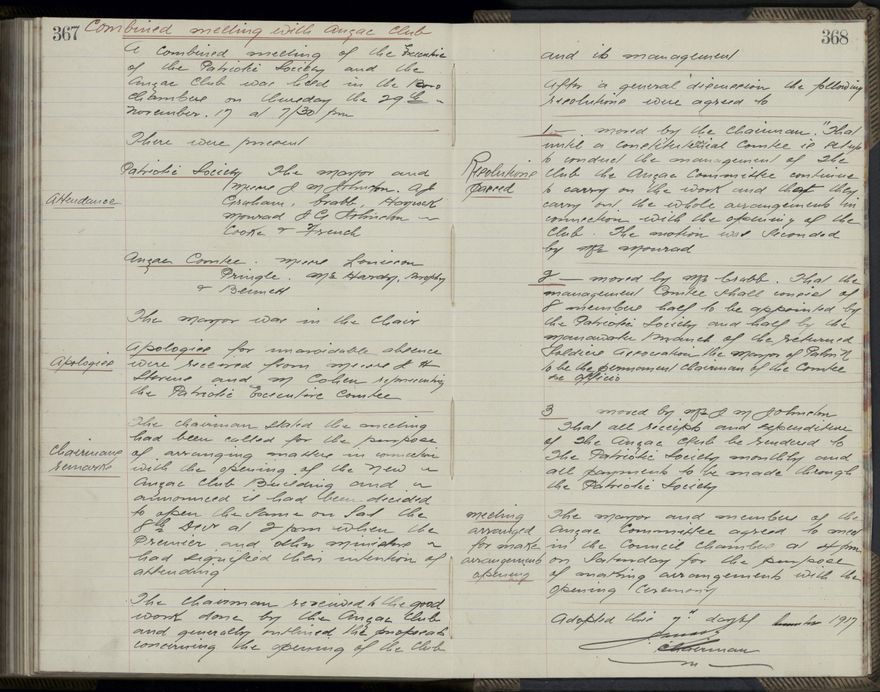 367
Combined meeting with Anzac Club
A combined meeting of the Executive
of the Patriotic Society and the
Anzac Club was held in the
Chambers on Thursday the 29th
November. 17 at 7/30 pm
There were present
Attendance
Patriotic Society The mayor and
Messrs J M Johnston. A J
Graham. Crabb. Harwick
Mounrad J G Johnston
Cooke & French
Anzac Comtee. Messrs
Pringle. Mr Hardy. Brophy
& Bennett
The Mayor was in the Chair
Apologies
Apologies for unavoidable absence
were received from Messrs J H
Stevens and M Cohen representing
the Patriotic Executive Comtee
Chairmans
remarks
The chairman stated the meeting
had been called for the purpose
of arranging matters in connection
with the opening of the New
Anzac Club Building and
announced it had been decided
to open the same on Sat the
8th Decr at 2 pm when the
Premier and other ministers
had signified their intention of
attending
The chairman reviewed the good
work done by the Anzac Club
and generally outlined the proposals
concerning the opening of the Club
368
and its management
After a general discussion the following
resolutions were agreed to
Resolutions
passed
1 moved by the Chairman. "That
until a constitutional Comtee is set up
to conduct the management of the
Club the Anzac Committee continue
to carry on the work and that they
carry out the whole arrangements in
connection with the opening of the
Club. The motion was seconded
by Mr Mounrad
2 — moved by Mr Crabb. That the
management Comtee shall consist of
8 members half to be appointed by
the Patriotic Society and half by the
Manawatu Branch of the Returned
Soldiers Association the Mayor of Palm N
to be the permanent chairman of the Comtee
ex officio
3 moved by Mr J M Johnston
That all receipts and expenditure
of the Anzac Club be rendered to
the Patriotic Society monthly and
all payments to be made through
the Patriotic Society
meeting
arranged
for make
arrangements
opening
The mayor and members of the
Anzac Committee agreed to meet
in the Council Chambers at 4 pm
on Saturday for the purpose
of making arrangements with the
opening ceremony
Adopted this 7th day of 1917
Chairman